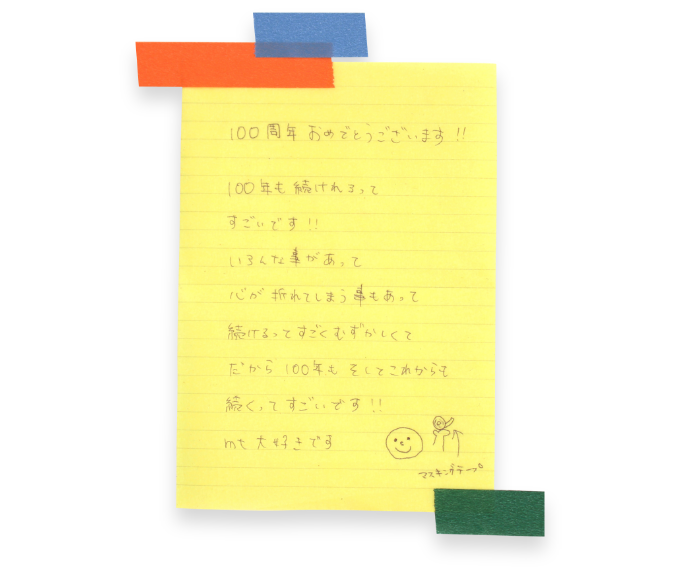 100周年 おめでとうございます!!
100年も 続けれるって
すごいです!!
いろんな事があって
心が 折れてしまう事もあって
続けるってすごくむずかしくて
だから 100年も そしてこれからも
続くって すごいです!!
mt 大好きです
マスキングテープ